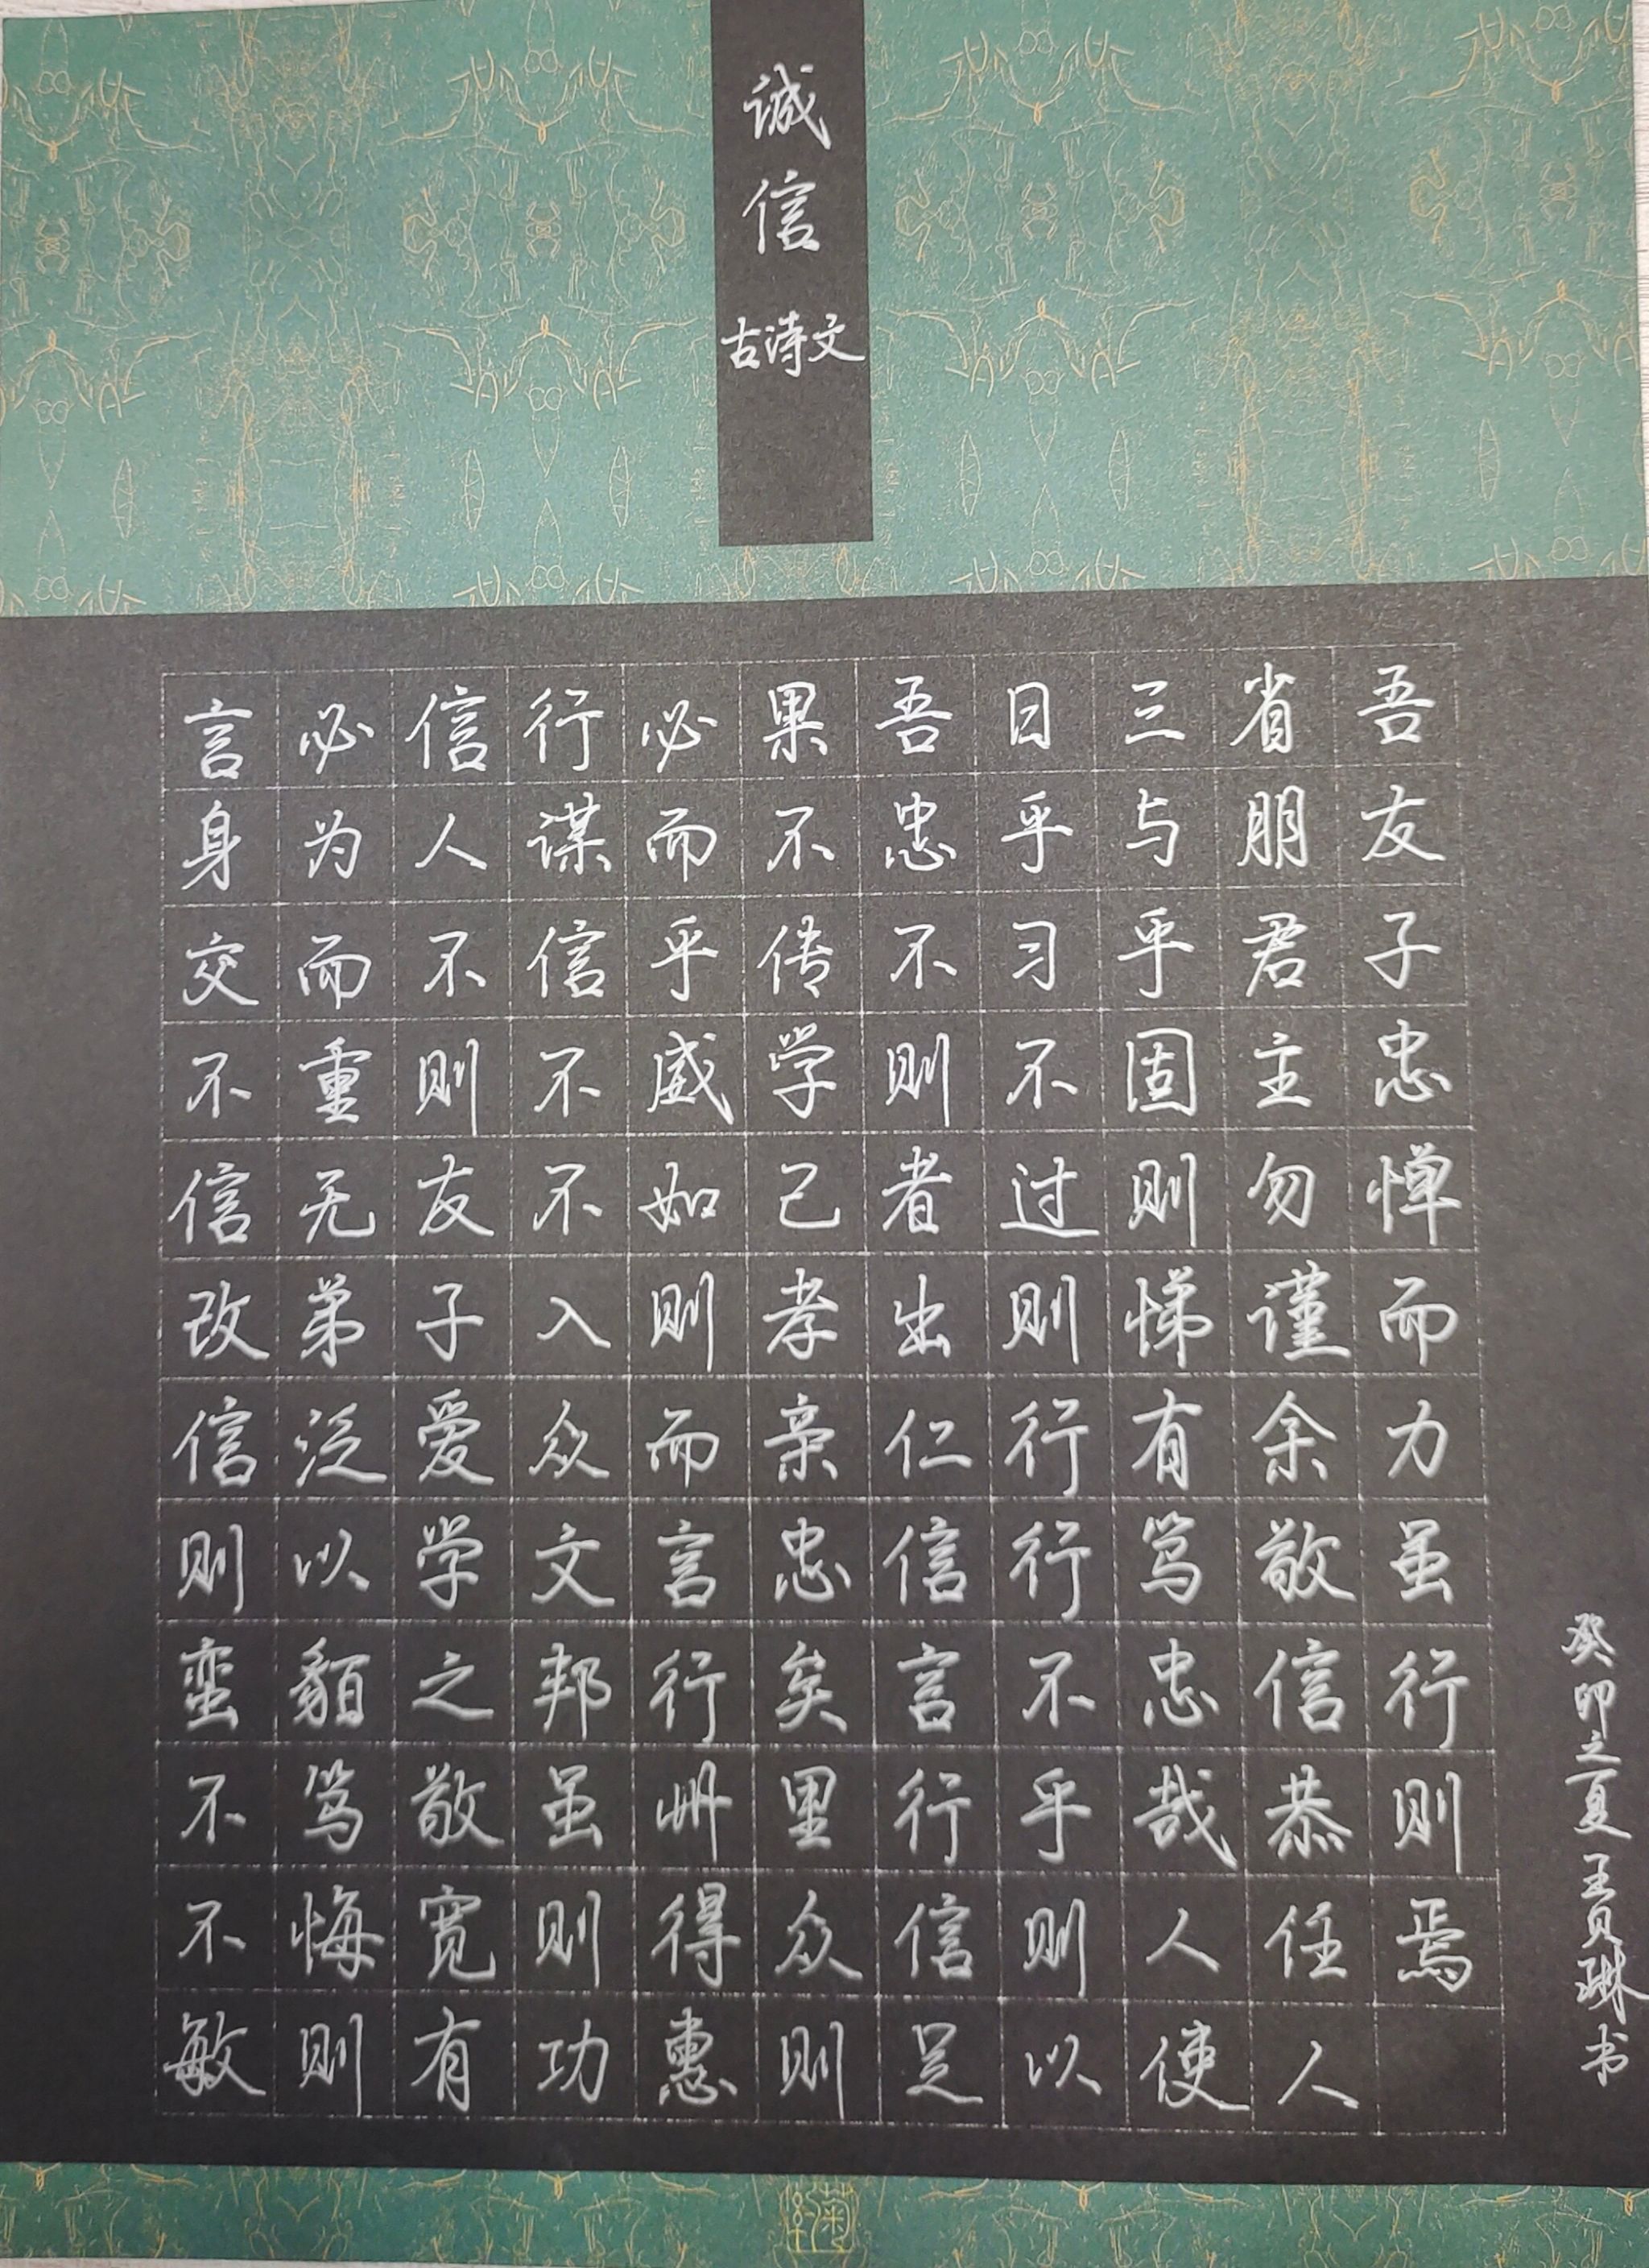 诚信
古诗文
言必信行必果吾日三省吾
身为人谋而不忠乎与朋友
交而不信乎传不习乎君子
不重则不威学则不固主忠
信无友不如己者过则勿惮
改弟子入则孝出则悌谨而
信泛爱众而亲仁行有余力
则以学文言忠信行笃敬虽
蛮貊之邦行矣言不忠信行
不笃敬虽州里行乎哉恭则
不悔宽则得众信则人任焉
敏则有功惠则足以使人
癸卯之夏王贝琳书